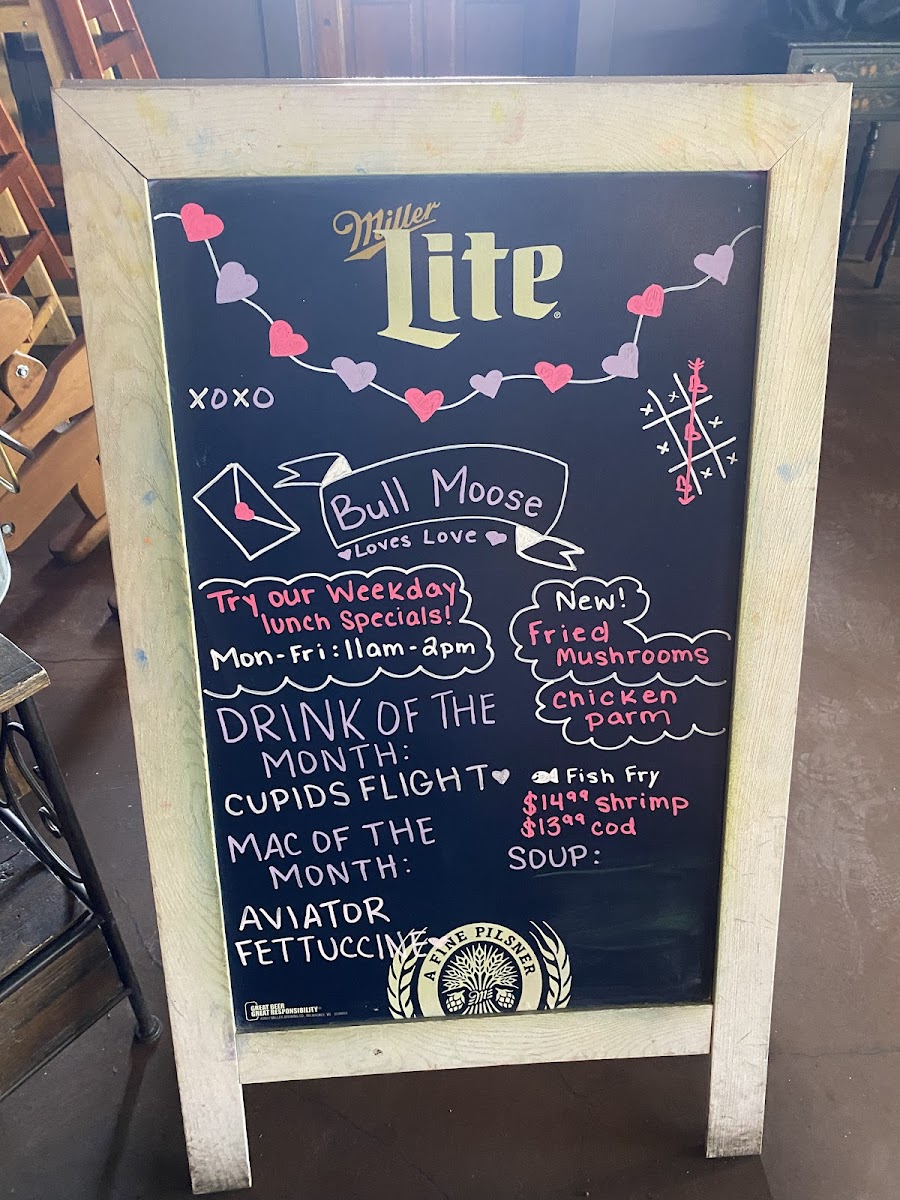 Miller
Lite
XOXO
Bull Moose
Loves Love
Try our Weekday
lunch Specials!
Mon-Fri: 11am-2pm
DRINK OF THE
MONTH:
CUPIDS FLIGHT
MAC OF THE
MONTH:
AVIATOR
FETTUCCINE
New!
Fried
Mushrooms
Chicken
parm
Fish Fry
$14.99 shrimp
$13.99 cod
SOUP:
A FINE PILSNER
M
GREAT BEER
GREAT RESPONSIBILITY